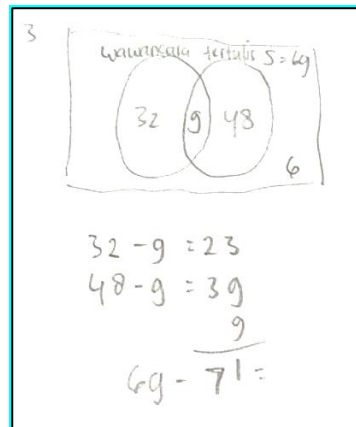 3
wawancara tertulis S = 69
32 9 48
6
32 - 9 = 23
48 - 9 = 39
9
69 - 71 =